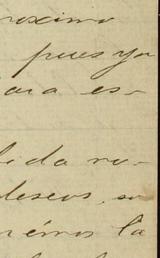 roximo
pues ya
para es-
lida no-
deseos, su
némos la